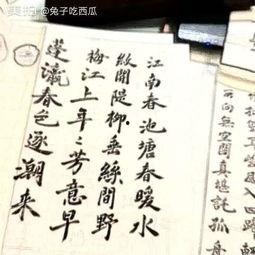 美拍 @兔子吃西瓜
江南春池塘春暖水
紋開堤柳垂絲間野
梅江上年〻芳意早
蓬瀛春色逐潮来
向無空闊真堪託